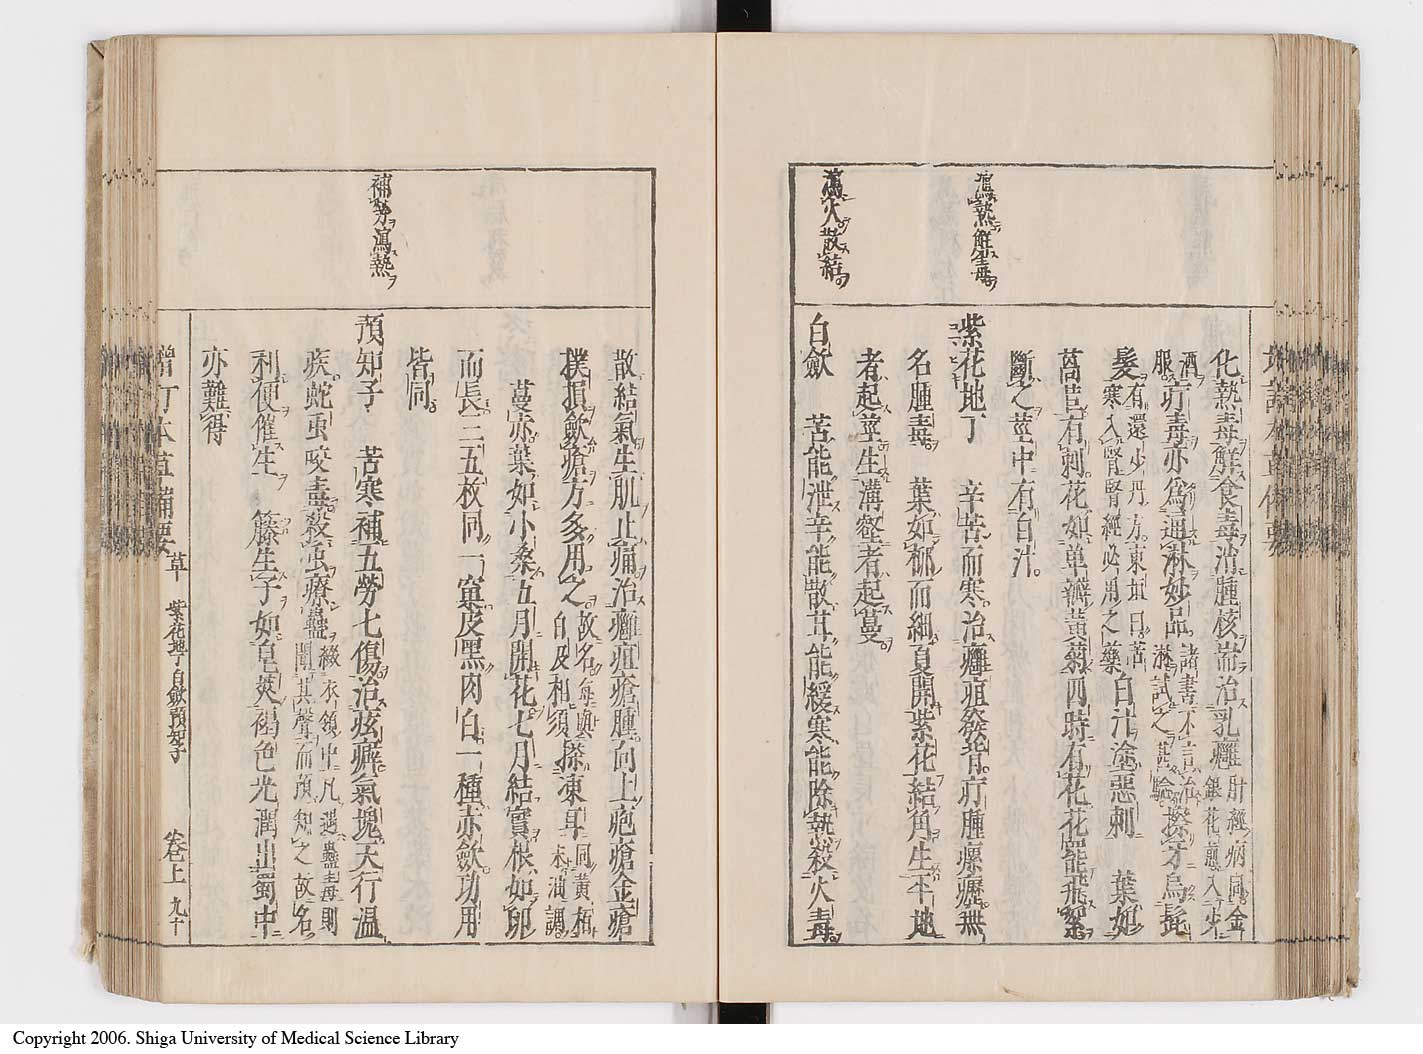 瀉熱解毒
瀉火散結
化熱毒解食毒消腫核治乳癰肝經病同金銀花煎入少
酒服疔毒亦爲通淋妙品諸書不言治淋試之甚驗擦牙烏髭
髮有還少丹方東垣曰苦寒入腎腎經必用之藥白汁塗惡刺 葉如
萵苣有刺花如單瓣黃菊四時有花花罷飛絮
斷之莖中有白汁
紫花地丁 辛苦而寒治癰疽發背疔腫瘰癧無
名腫毒 葉如柳而細夏開紫花結角生平地
者起莖生溝壑者起蔓
白歛 苦能泄辛能散甘能緩寒能除熱殺火毒
補勞瀉熱
散結氣生肌止痛治癰疽瘡腫面上皰瘡金瘡
撲損歛瘡方多用之故名每與白及相須搽凍耳同黃柏末油調
蔓赤葉如小桑五月開花七月結實根如卵
而長三五枚同一窠皮黑肉白一種赤歛功用
皆同
預知子 苦寒補五勞七傷治痃癖氣塊天行温
疾蛇虫咬毒殺虫療蠱綴衣領中凡遇蠱毒則聞其聲而預知之故名
利便催生 藤生子如皂莢褐色光潤出蜀中
亦難得
增訂本草備要 草 紫花地丁白歛預知子 卷上 九十
Copyright 2006. Shiga University of Medical Science Library